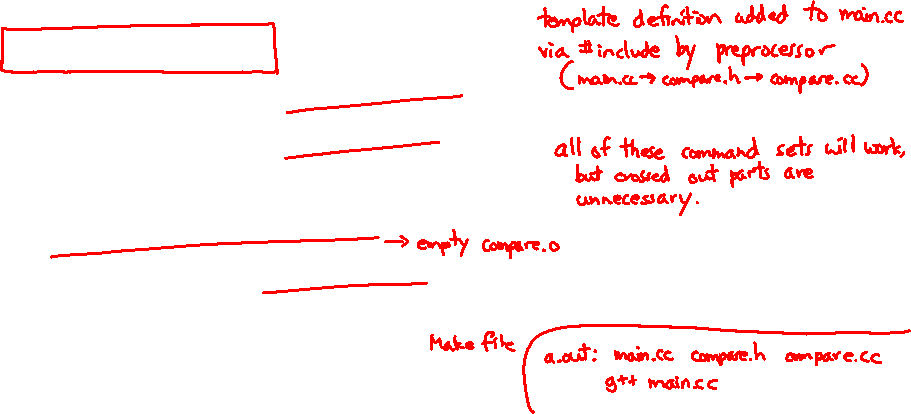 template definition added to main.cc
via #include by preprocessor
(main.cc→compare.h→compare.cc)
all of these command sets will work,
but crossed out parts are
unnecessary.
→ empty compare.o
Makefile
a.out: main.cc compare.h compare.cc
g++ main.cc